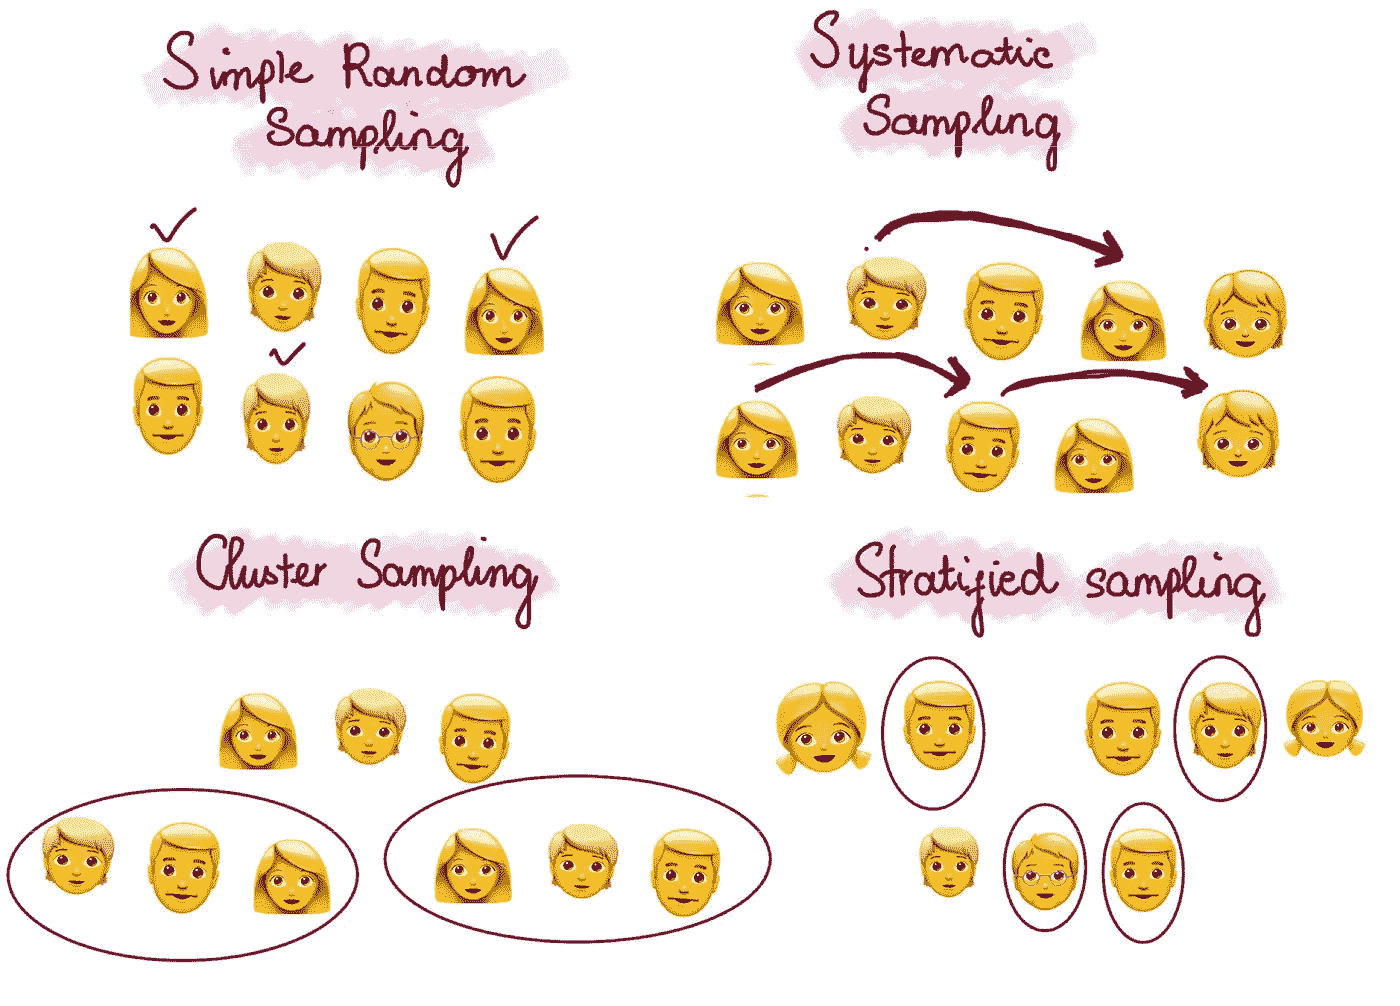 Simple Random
Sampling
Systematic
Sampling
Cluster Sampling
Stratified sampling